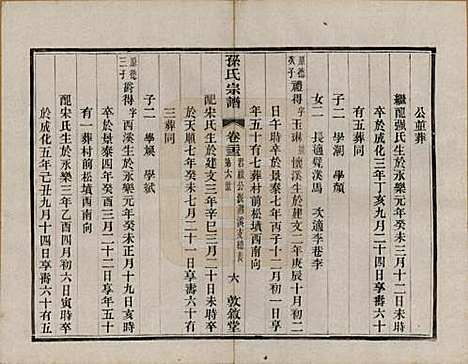 公堇葬
繼配強氏生於永樂元年癸未三月十一日未時
卒於成化三年丁亥八月二十一日酉時享壽六
十五葬同
子二 學潮 學顏
女二 長適鳧溪馬 次適李巷李
原德次子 禮得 字玉琳 懷溪生於建文二年庚辰十月初二
日午時卒於景泰七年丙子十二月初一日享
年五十有七葬村前松墳西南向
孫氏宗譜 卷三 六 敦敘堂
配宋氏生於建文三年辛巳三月二十日未時卒
於天順七年癸未七月二十一日享壽六十有
三葬同
子二 學煥 學斌
原德三子 爵得 字西溪生於永樂元年癸未正月十九日亥時
卒於景泰四年癸酉三月二十二日享年五十
有一葬村前松墳西南向
配宋氏生於永樂三年乙酉四月初六日寅時卒
於成化五年己丑九月十四日享壽六十有五